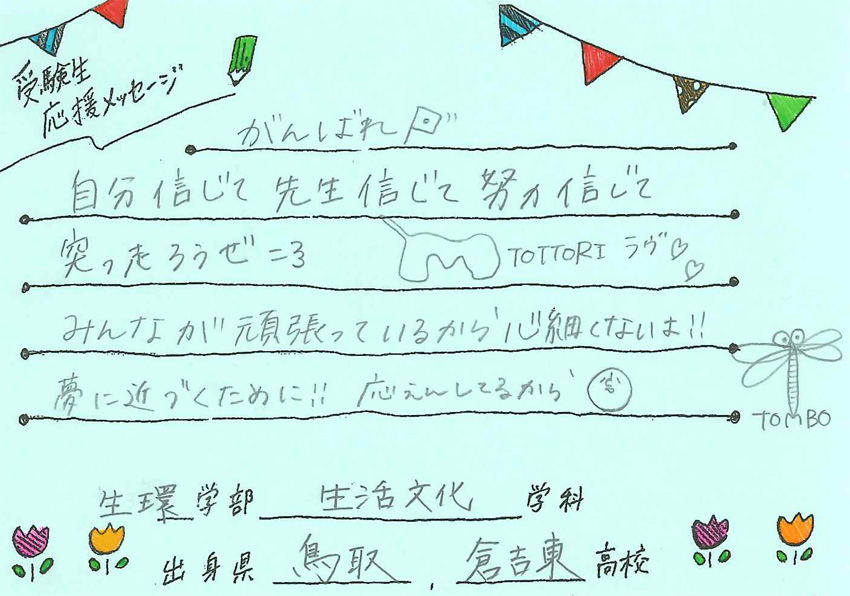 受験生
応援メッセージ
がんばれ
自分信じて 先生信じて 努力信じて
突っ走ろうぜ=3 TOTTORI ラヴ♡♡
みんなが頑張っているから心細くないよ!!
夢に近づくために!! 応えんしてるから
TOMBO
生環学部 生活文化 学科
出身県 鳥取, 倉吉東 高校